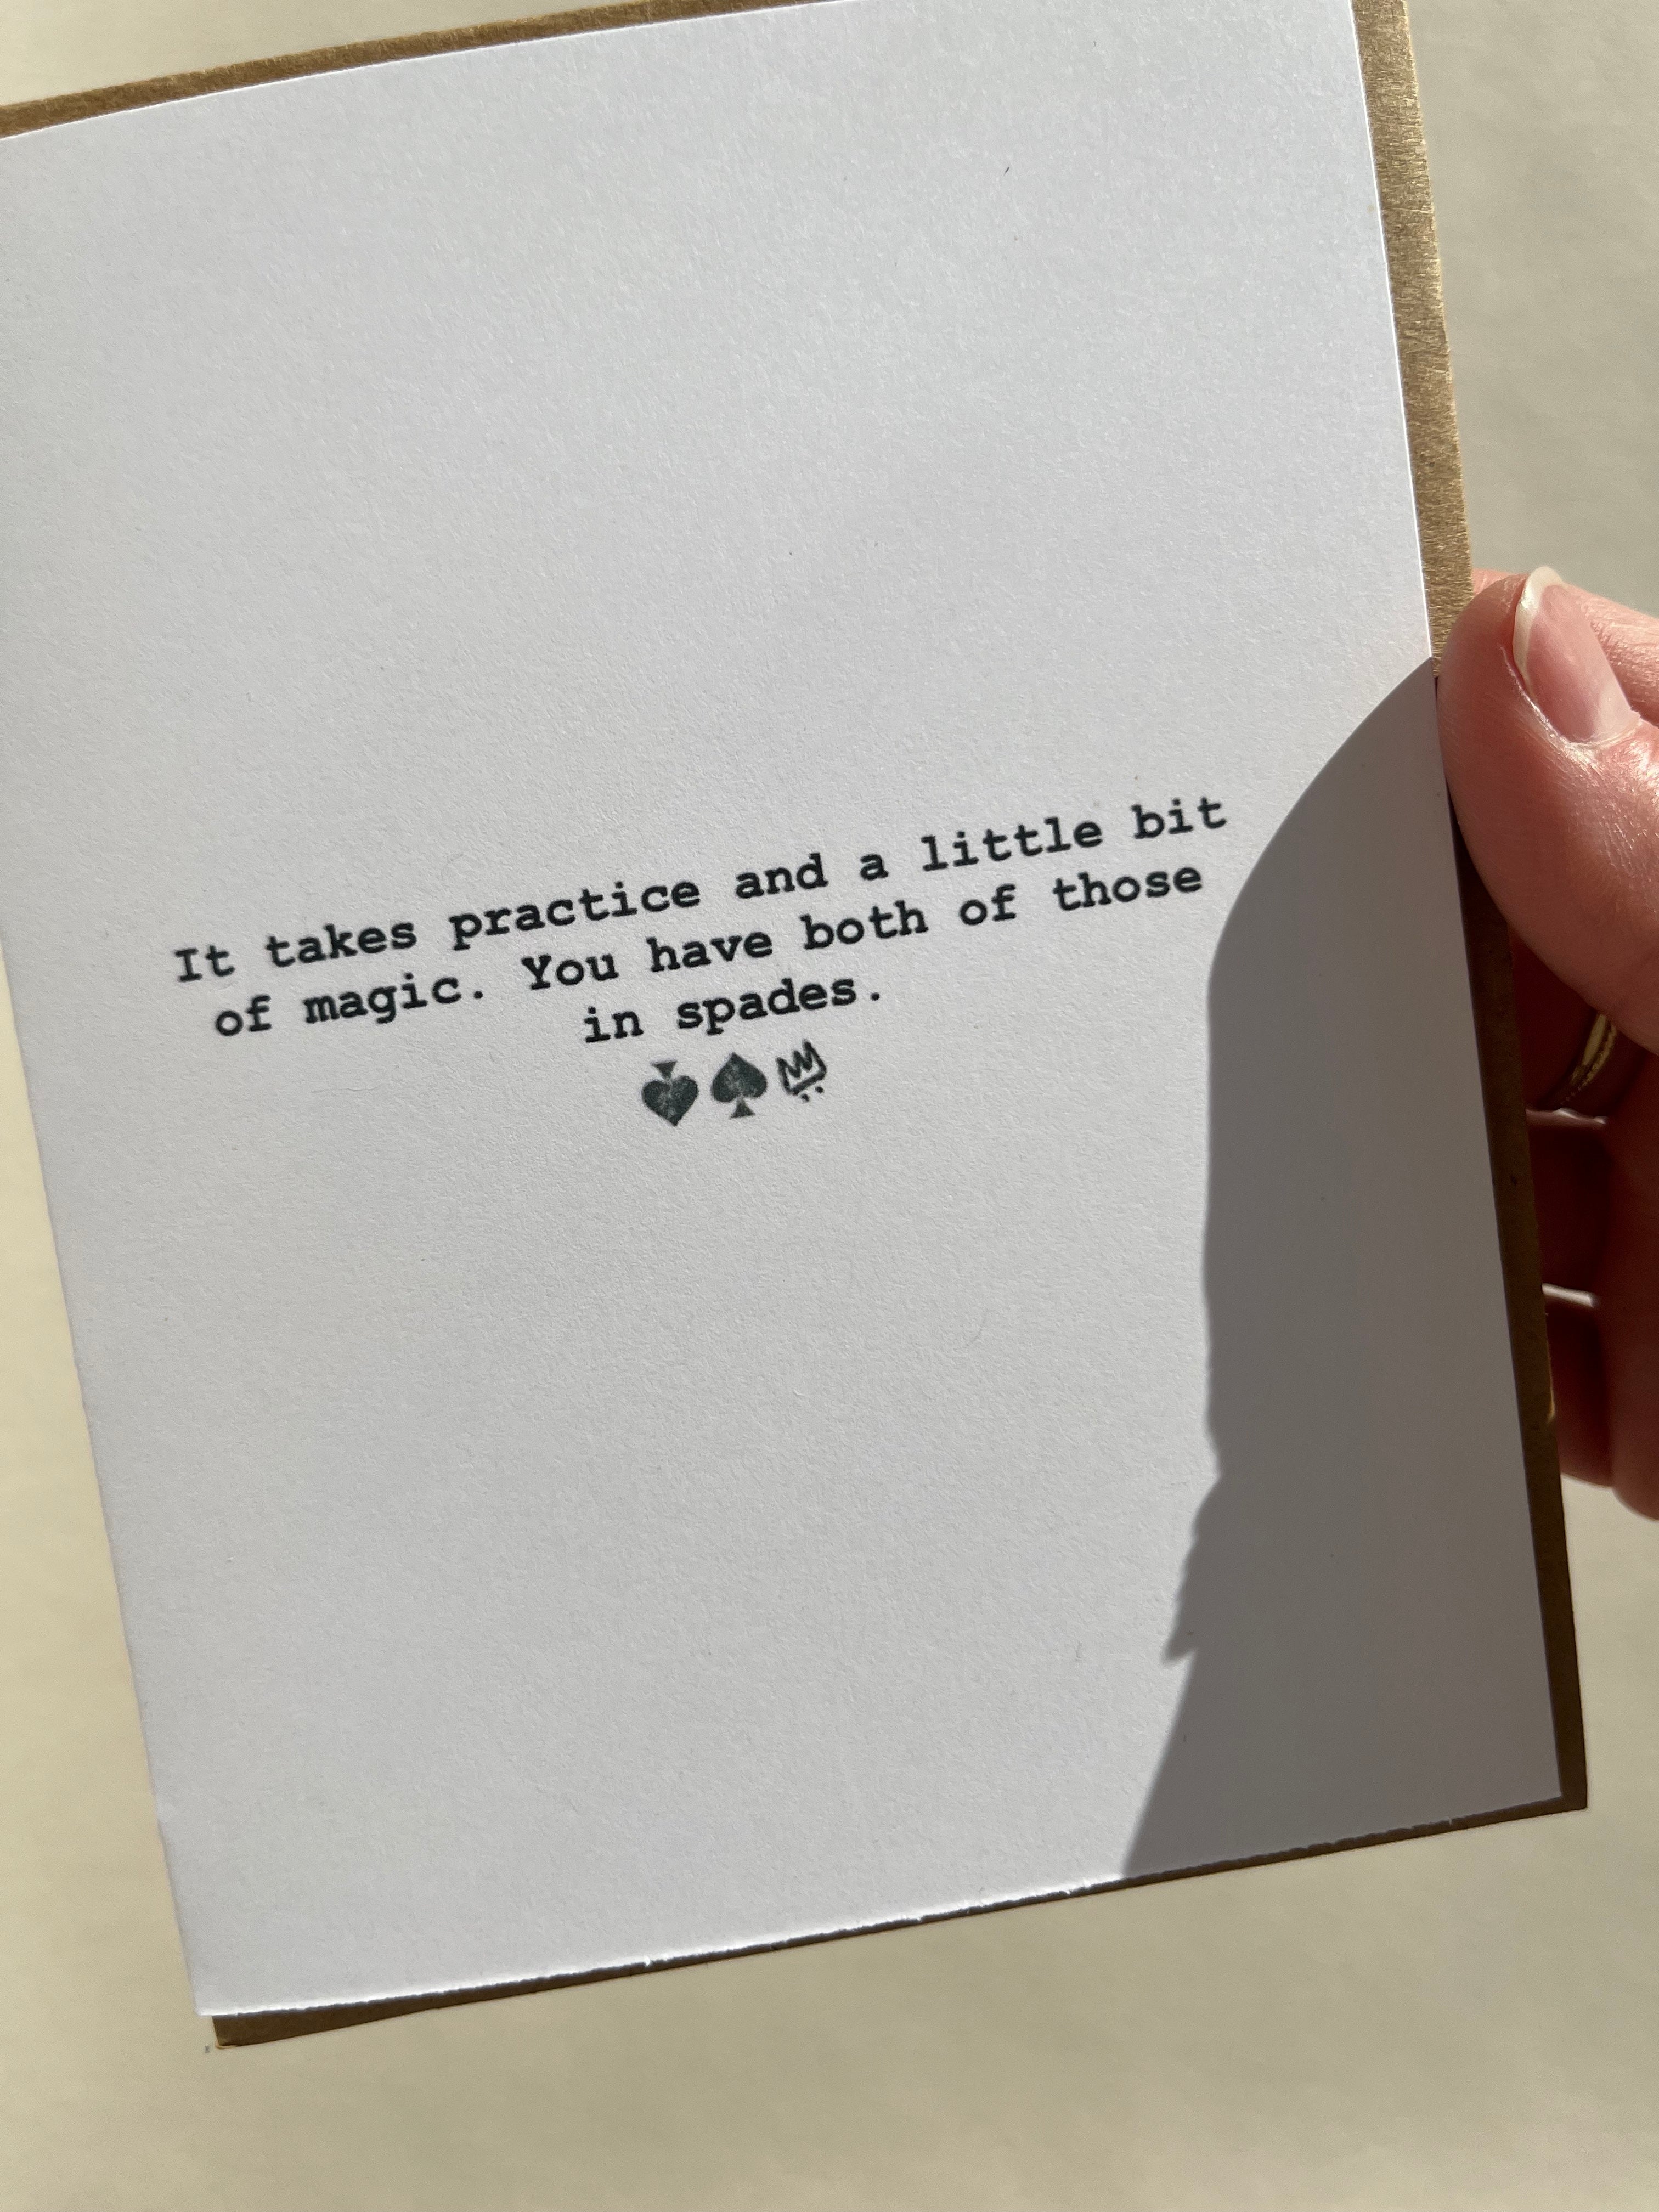 It takes practice and a little bit
of magic. You have both of those
in spades.